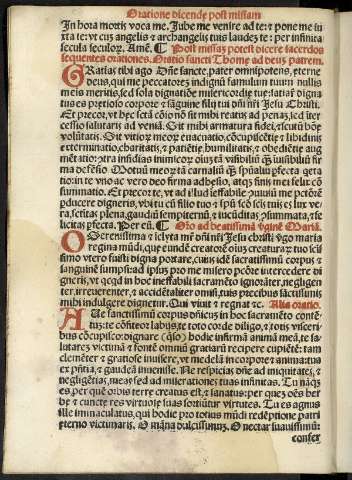 Orationes dicende post missam
In hora mortis voca me. Jube me venire ad te: ⁊ pone me iu
xta te: vt cuȝ angelis ⁊ archangelis tuis laudeȝ te: per infinita
secula seculoꝝ. Amē. ¶ Post missaȝ potest dicere sacerdos
sequentes orationes. Oratio sancti Thome ad deuȝ patrem.
GRatias tibi ago Dñe sancte, pater omnipotens, eterne
deus, qui me peccatoreȝ indignū famulum tuum nullis
meis meritis, sed sola dignatiōe misericordie tue, satiare
tus es pretioso corpore ⁊ sanguine filij tui dñi nr̄i Jesu Christi.
Et precor, vt hec sct̄a cōio nō sit mihi reatus ad penaȝ, sed iter
cessio salutaris ad veniā. Sit mihi armatura fidei, ⁊ scutū bōe
volūtatis. Sit vitioꝝ meoꝝ euacuatio, cōcupiscētie ⁊ libidinis
exterminatio, charitatis, ⁊ patiētie, humilitatis, ⁊ obediētie aug
mētatio: ⁊tra insidias inimicoꝝ oīuȝ tā visibiliū q̄ȝ inuisibiliū fir
ma defēsio. Motuū meoꝝ tā carnaliū q̄ȝ spūaliū ꝑfecta qeta
tio: in te vno ac vero deo firma adhesio, atqȝ finis mei felix cō
summatio. Et precor te, vt ad illud ineffabile ꝯuiuiū me pctōrē
pducere digneris, vbi tu cū filio tuo ⁊ spū scō scīs tuis es lux ve
ra, satietas plena, gaudiū sempiternū, ⁊ iucūditas ꝯsummata, ⁊ fe
licitas pfecta. Per eū. ¶ Or̄o ad beatissimā v̄ginē Mariā.
O Serenissima ⁊ iclyta mr̄ dñi nr̄i Jesu christi v̄go maria
regina mūdi, que eundē creatorē oīuȝ creaturaꝝ tuo scis
simo vtero fuisti digna portare, cuius idē sacratissimū corpus ⁊
sanguinē sumpsi: ad ipsuȝ pro me misero pctōre intercedere di
gneris, vt qcqd in hoc ineffabili sacramēto ignorāter, negligen
ter, irreuerenter, ⁊ accidētaliter omisi, tuis precibus sctissimis
mihi indulgere dignetur. Qui viuit ⁊ regnat ⁊c. Alia oratio.
AUe sanctissimū corpus dñicuȝ in hoc sacramēto contē
tuȝ: te cōfiteor labijs, te toto corde diligo, ⁊ totis visceri
bus cōcupisco: dignare (q̄so) hodie infirmā animā meā, te sa
lutareȝ victimā ⁊ fontē omniū gratiarū recipere cupiētē: tam
clemēter ⁊ gratiose inuisere, vt medelā in corpore ⁊ anima: tua
ex pn̄tia, ⁊ gaudeā inuenisse. Ne respicias dn̄e ad iniquitates, ⁊
negligētias, meas sed ad miserationes tuas infinitas. Tu nāqȝ
es, per quē orbis terre creatus est, ⁊ sanatus: per queȝ oēs her
be ⁊ cuncte res virtuose suas sortiūtur virtutes. Tu es agnus
ille immaculatus, qui hodie pro totius mūdi redēptione patri
eterno victimaris. O māna dulcissimuȝ. O nectar suauissimū:
confer